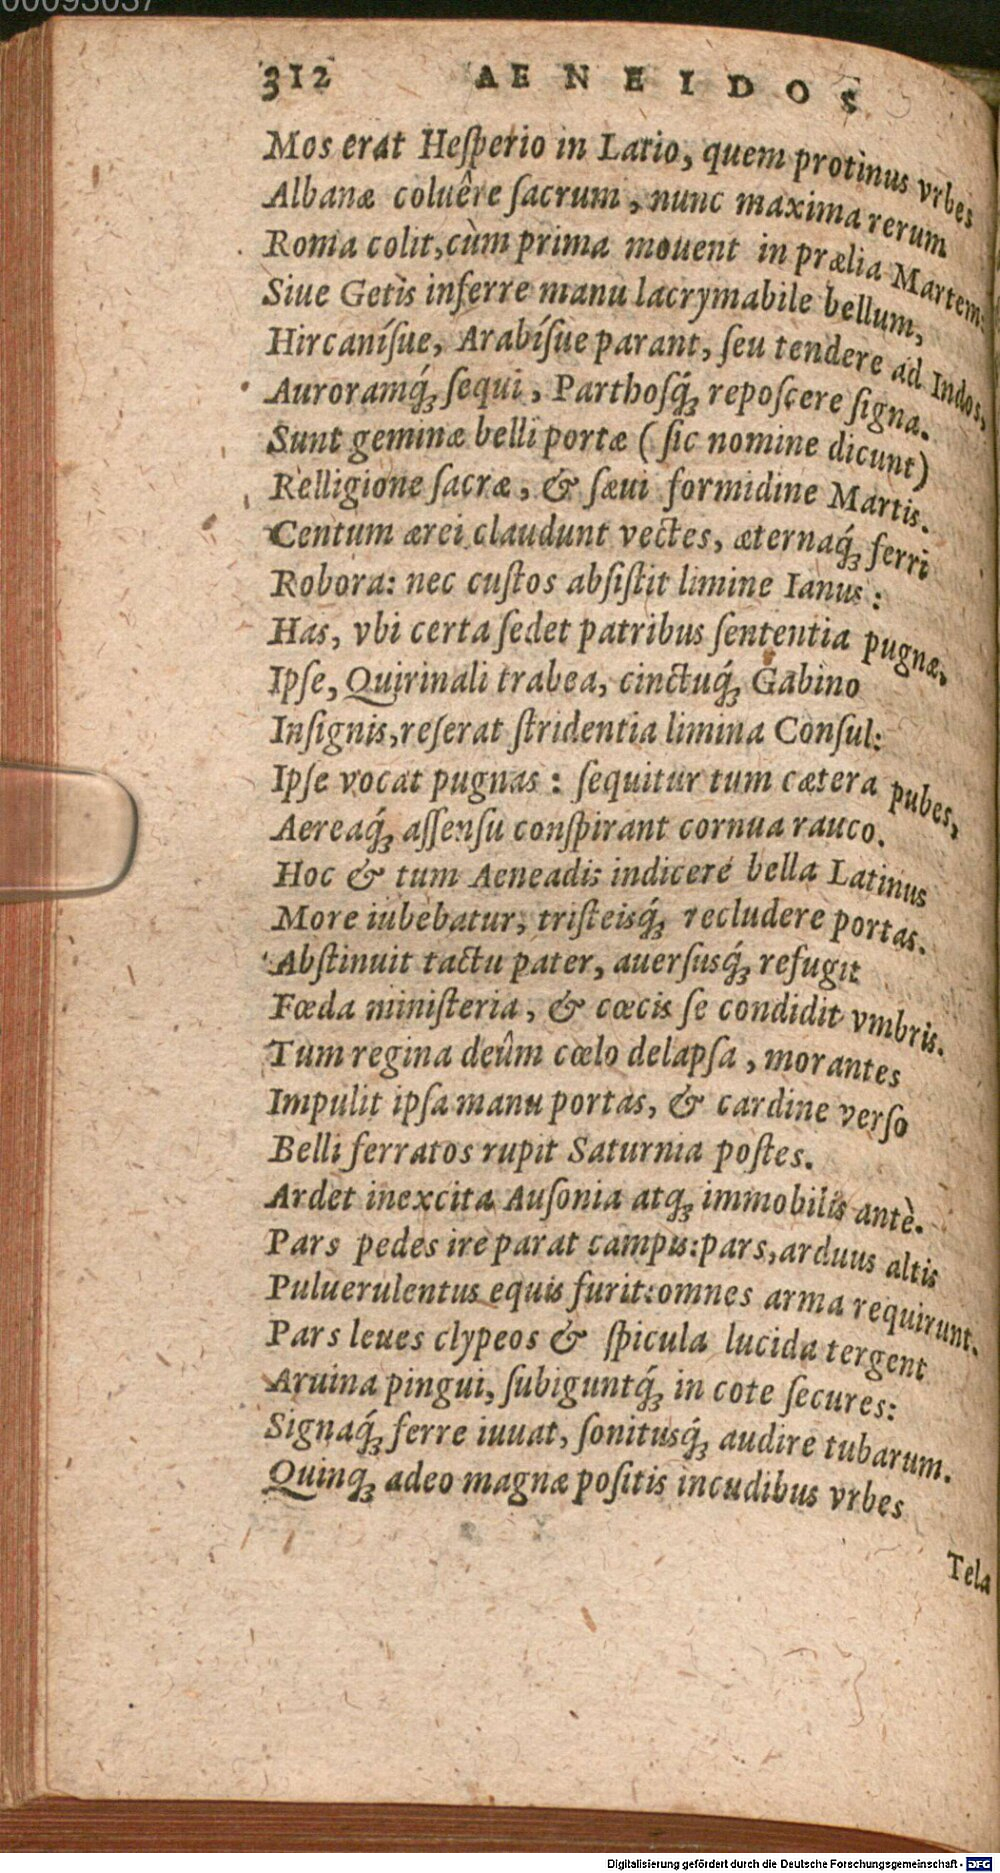 00093037
312 AENEIDOS
Mos erat Heſperio in Latio, quem protinus vrbes
Albanæ coluêre ſacrum, nunc maxima rerum
Roma colit, cùm prima mouent in prælia Martem:
Siue Getis inferre manu lacrymabile bellum,
Hircaníſue, Arabíſue parant, ſeu tendere ad Indos,
Auroramq́ꝫ ſequi, Parthoſq́ꝫ repoſcere ſigna.
Sunt geminæ belli portæ (ſic nomine dicunt)
Relligione ſacræ, & ſæui formidine Martis.
Centum ærei claudunt vectes, æternaq́ꝫ ferri
Robora: nec cuſtos abſiſtit limine Ianus:
Has, vbi certa ſedet patribus ſententia pugnæ,
Ipſe, Quirinali trabea, cinctuq́ꝫ Gabino
Inſignis, reſerat ſtridentia limina Conſul:
Ipſe vocat pugnas: ſequitur tum cætera pubes,
Aereaq́ꝫ aſſenſu conſpirant cornua rauco.
Hoc & tum Aeneadis indicere bella Latinus
More iubebatur, triſteisq́ꝫ recludere portas.
Abſtinuit tactu pater, auerſusq́ꝫ refugit
Fœda miniſteria, & cœcis ſe condidit vmbris.
Tum regina deûm cœlo delapſa, morantes
Impulit ipſa manu portas, & cardine verſo
Belli ferratos rupit Saturnia poſtes.
Ardet inexcita Auſonia atqꝫ immobilis antè.
Pars pedes ire parat campis: pars, arduus altis
Puluerulentus equis furit: omnes arma requirunt.
Pars leues clypeos & ſpicula lucida tergent
Aruina pingui, ſubiguntq́ꝫ in cote ſecures:
Signaq́ꝫ ferre iuuat, ſonitusq́ꝫ audire tubarum.
Quinqꝫ adeo magnæ poſitis incudibus vrbes
Tela
Digitalisierung gefördert durch die Deutsche Forschungsgemeinschaft - DFG